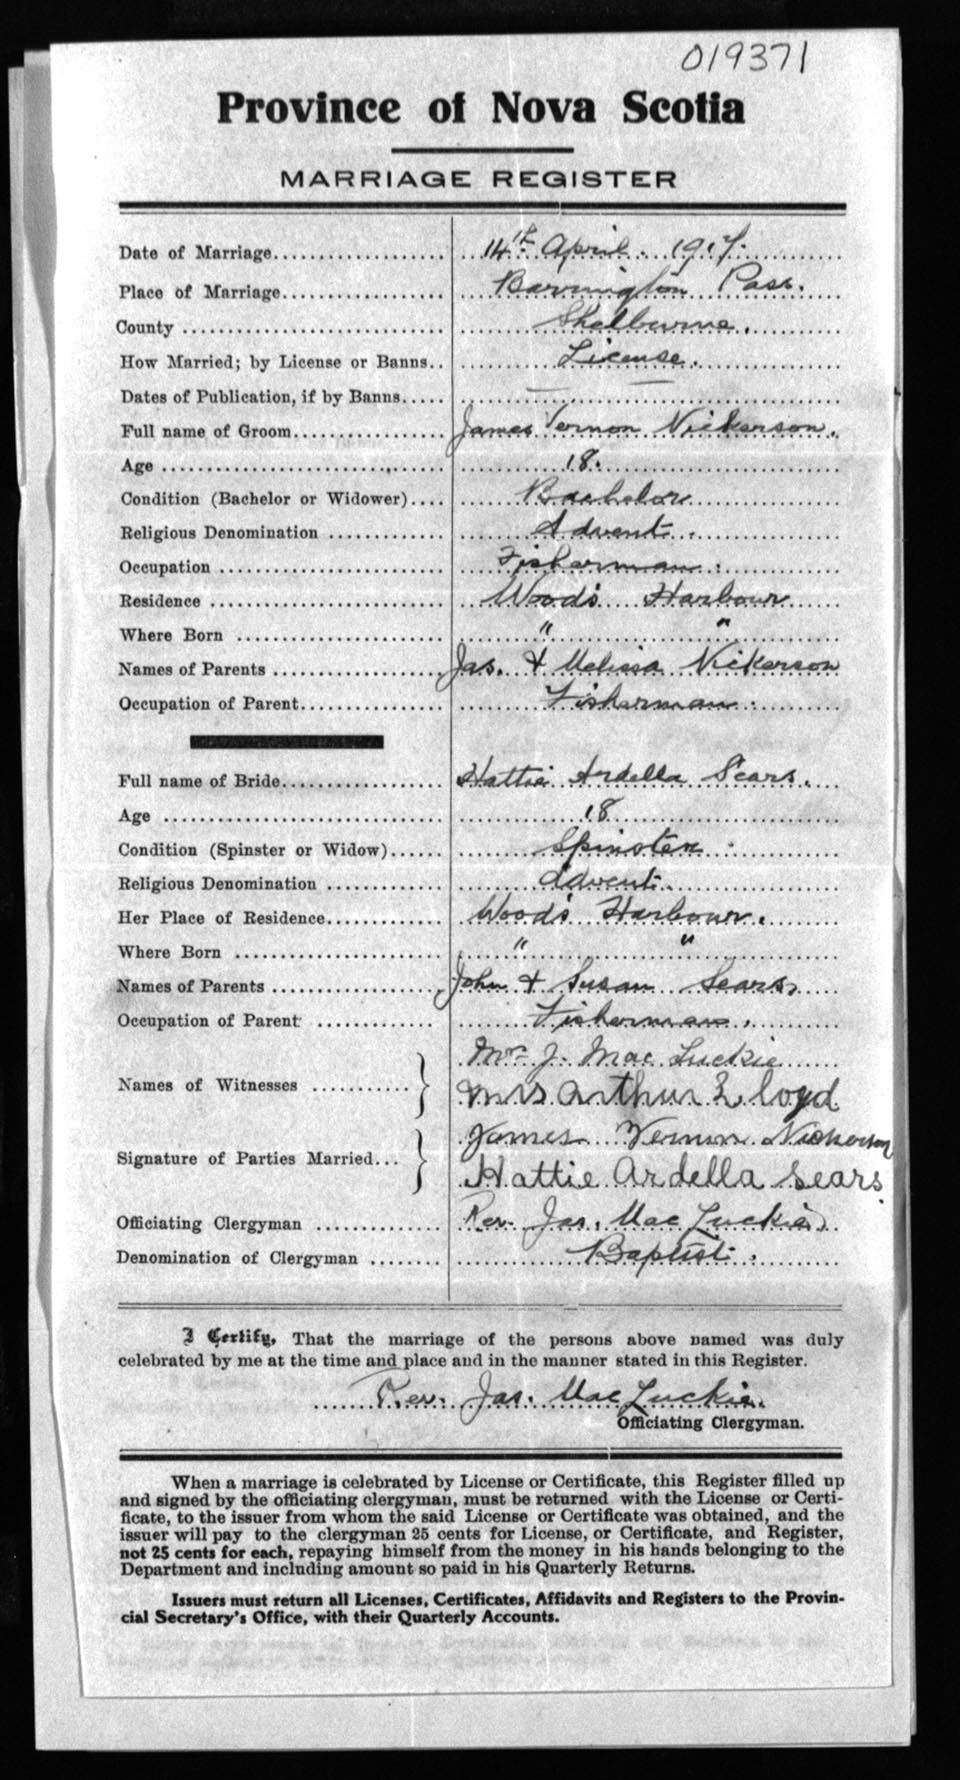 019371
Province of Nova Scotia
MARRIAGE REGISTER
Date of Marriage 14th April. 1917.
Place of Marriage Barrington Pass.
County Shelburne.
How Married; by License or Banns.. License.
Dates of Publication, if by Banns — —
Full name of Groom James Vernon Nickerson.
Age 18.
Condition (Bachelor or Widower) Bachelor
Religious Denomination Advent.
Occupation Fisherman.
Residence Wood's Harbour
Where Born " "
Names of Parents Jas. & Melissa Nickerson
Occupation of Parent Fisherman.
Full name of Bride Hattie Ardella Sears.
Age 18
Condition (Spinster or Widow) Spinster
Religious Denomination Advent.
Her Place of Residence Wood's Harbour.
Where Born " "
Names of Parents John & Susan Sears,
Occupation of Parent Fisherman.
Mrs J. Mac Luckie
Names of Witnesses } Mrs Arthur Lloyd
James Vernon Nickerson
Signature of Parties Married... } Hattie Ardella Sears
Officiating Clergyman Rev. Jas. Mac Luckie
Denomination of Clergyman Baptist.
I Certify, That the marriage of the persons above named was duly
celebrated by me at the time and place and in the manner stated in this Register.
Rev. Jas. Mac Luckie.
Officiating Clergyman.
When a marriage is celebrated by License or Certificate, this Register filled up
and signed by the officiating clergyman, must be returned with the License or Certi-
ficate, to the issuer from whom the said License or Certificate was obtained, and the
issuer will pay to the clergyman 25 cents for License, or Certificate, and Register,
not 25 cents for each, repaying himself from the money in his hands belonging to the
Department and including amount so paid in his Quarterly Returns.
Issuers must return all Licenses, Certificates, Affidavits and Registers to the Provin-
cial Secretary's Office, with their Quarterly Accounts.